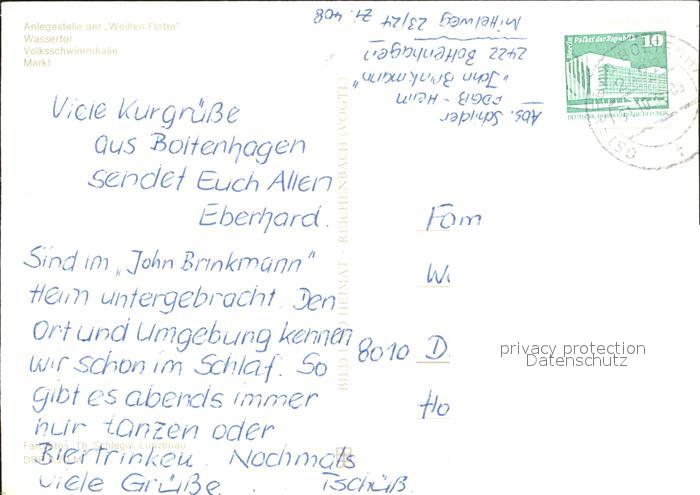 Anlegestelle der „Weißen Flotte"
Wassertor
Volksschwimmhalle
Markt
Viele Kurgrüße
aus Boltenhagen
sendet Euch Allen
Eberhard.
Sind im „John Brinkmann"
Heim untergebracht. Den
Ort und Umgebung kennen
wir schon im Schlaf. So
gibt es abends immer
nur tanzen oder
Biertrinken. Nochmals
viele Grüße. Tschüß.
Farbfotos: Th. Schlegel, Lunzenau
BILD UND HEIMAT · REICHENBACH (VOGTL)
Abs. Schrider
FDGB-Heim
„John Brinkmann"
2422 Boltenhagen
Mittelweg 23/24 Zi. 408
Berlin Palast der Republik 10
Fam
W
8010 D.
Ho
privacy protection
Datenschutz